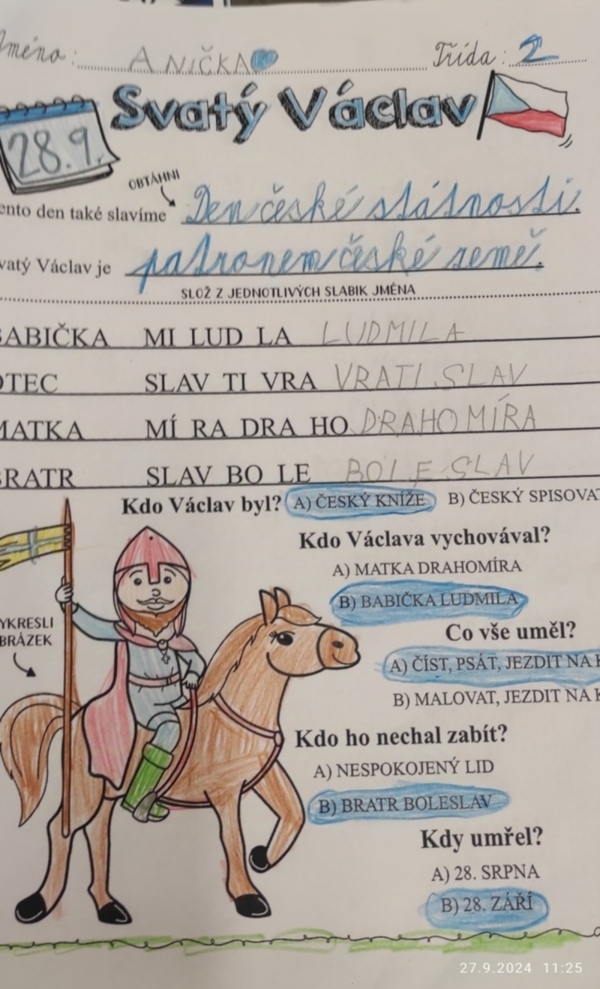 Jméno: ANIČKA Třída: 2
Svatý Václav
28.9.
OBTÁHNI
ento den také slavíme Den české státnosti.
vatý Václav je patronem české země.
SLOŽ Z JEDNOTLIVÝCH SLABIK JMÉNA
BABIČKA MI LUD LA LUDMILA
OTEC SLAV TI VRA VRATISLAV
MATKA MÍ RA DRA HO DRAHOMÍRA
BRATR SLAV BO LE BOLESLAV
Kdo Václav byl? A) ČESKÝ KNÍŽE B) ČESKÝ SPISOVA
Kdo Václava vychovával?
A) MATKA DRAHOMÍRA
B) BABIČKA LUDMILA
YKRESLI
BRÁZEK
Co vše uměl?
A) ČÍST, PSÁT, JEZDIT NA K
B) MALOVAT, JEZDIT NA K
Kdo ho nechal zabít?
A) NESPOKOJENÝ LID
B) BRATR BOLESLAV
Kdy umřel?
A) 28. SRPNA
B) 28. ZÁŘÍ
27.9.2024 11:25